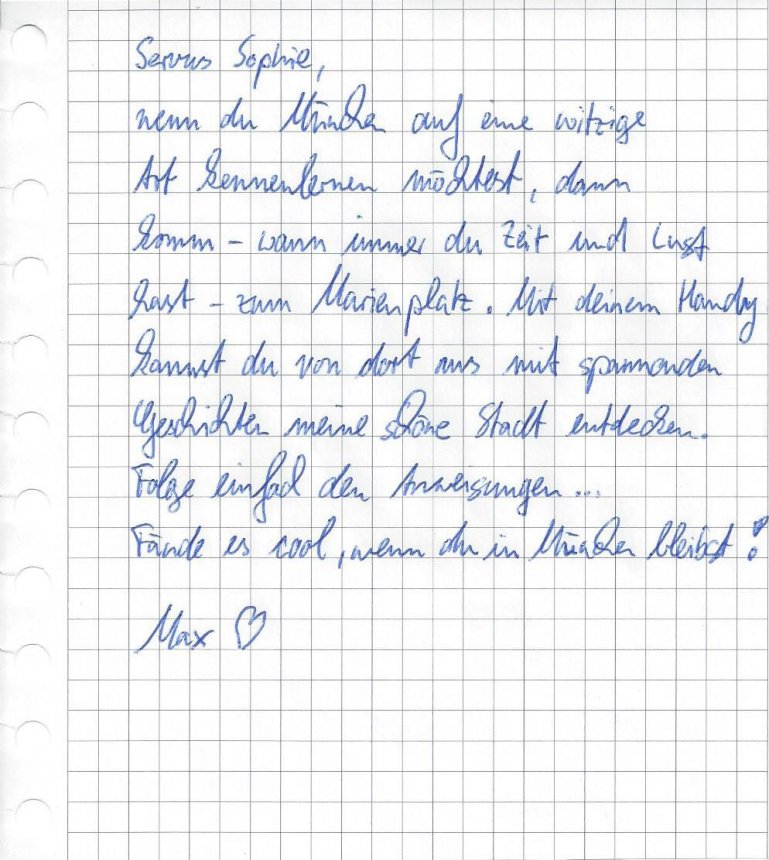 Servus Sophie,
wenn du München auf eine witzige
Art kennenlernen möchtest, dann
komm – wann immer du Zeit und Lust
hast – zum Marienplatz. Mit deinem Handy
kannst du von dort aus mit spannenden
Geschichten meine schöne Stadt entdecken.
Folge einfach den Anweisungen...
Fände es cool, wenn du in München bleibst!
Max ♡